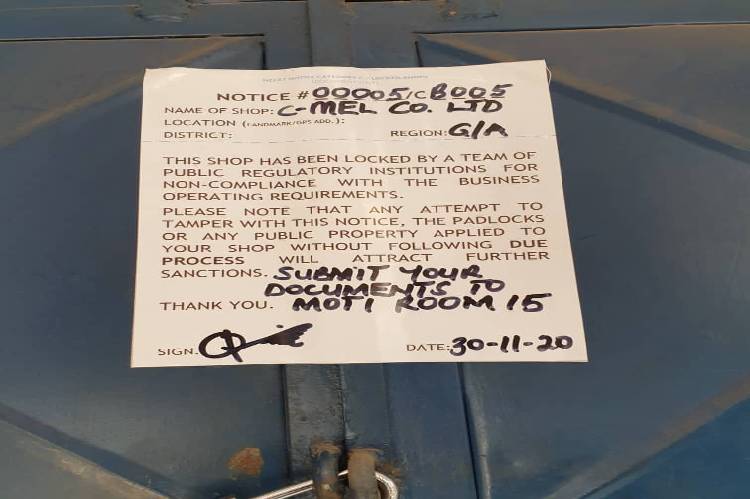 NOTICE #00005/CB005
NAME OF SHOP: C-MEL CO. LTD
LOCATION (LANDMARK/GPS ADD.):
DISTRICT: REGION: G/A
THIS SHOP HAS BEEN LOCKED BY A TEAM OF
PUBLIC REGULATORY INSTITUTIONS FOR
NON-COMPLIANCE WITH THE BUSINESS
OPERATING REQUIREMENTS.
PLEASE NOTE THAT ANY ATTEMPT TO
TAMPER WITH THIS NOTICE, THE PADLOCKS
OR ANY PUBLIC PROPERTY APPLIED TO
YOUR SHOP WITHOUT FOLLOWING DUE
PROCESS WILL ATTRACT FURTHER
SANCTIONS. SUBMIT YOUR
DOCUMENTS TO
THANK YOU. MOTI ROOM 15
SIGN. DATE: 30-11-20